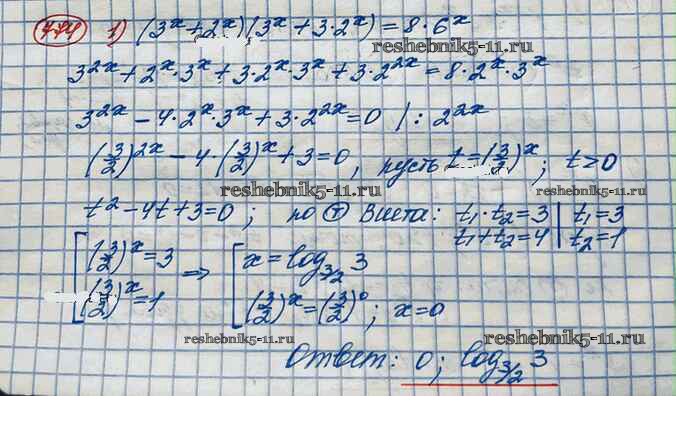 774 1) (3^x + 2^x)(3^x + 3·2^x) = 8·6^x
reshebnik5-11.ru
3^{2x} + 2^x·3^x + 3·2^x·3^x + 3·2^{2x} = 8·2^x·3^x
3^{2x} - 4·2^x·3^x + 3·2^{2x} = 0 /: 2^{2x}
(3/2)^{2x} - 4·(3/2)^x + 3 = 0, пусть t = (3/2)^x; t > 0
reshebnik5-11.ru reshebnik5-11.ru
t² - 4t + 3 = 0; по Ⓣ Виета: t₁·t₂ = 3 | t₁ = 3
t₁ + t₂ = 4 | t₂ = 1
[(3/2)^x = 3 ⇒ [x = log_{3/2} 3
(3/2)^x = 1 (3/2)^x = (3/2)^0; x = 0
reshebnik5-11.ru reshebnik5-11.ru
Ответ: 0; log_{3/2} 3